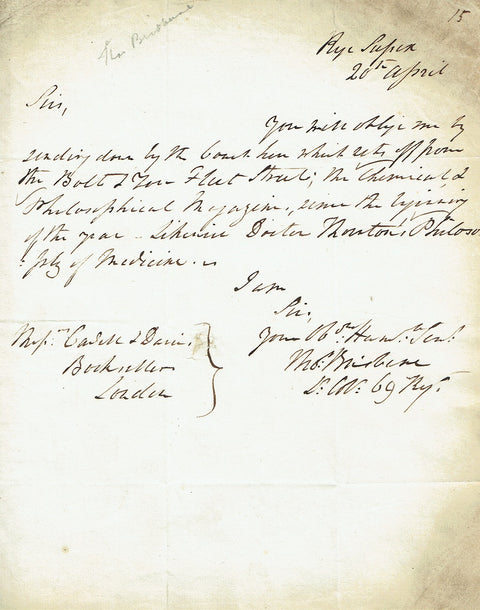 15
Tho Brisbane
Rye Sussex
20th April
Sir,
You will oblige me by
sending down by the Coach here which sets off from
the Bolt & Tun Fleet Street; the Chemical, &
Philosophical Magazine, since the beginning
of the year - Likewise Doctor Thornton's Philoso
:phy of Medicine. -
I am
Sir,
Your Obdt Humb Sert
Thos Brisbane
Lt Col 69 Regt
Messrs Cadell & Davies
Booksellers
London